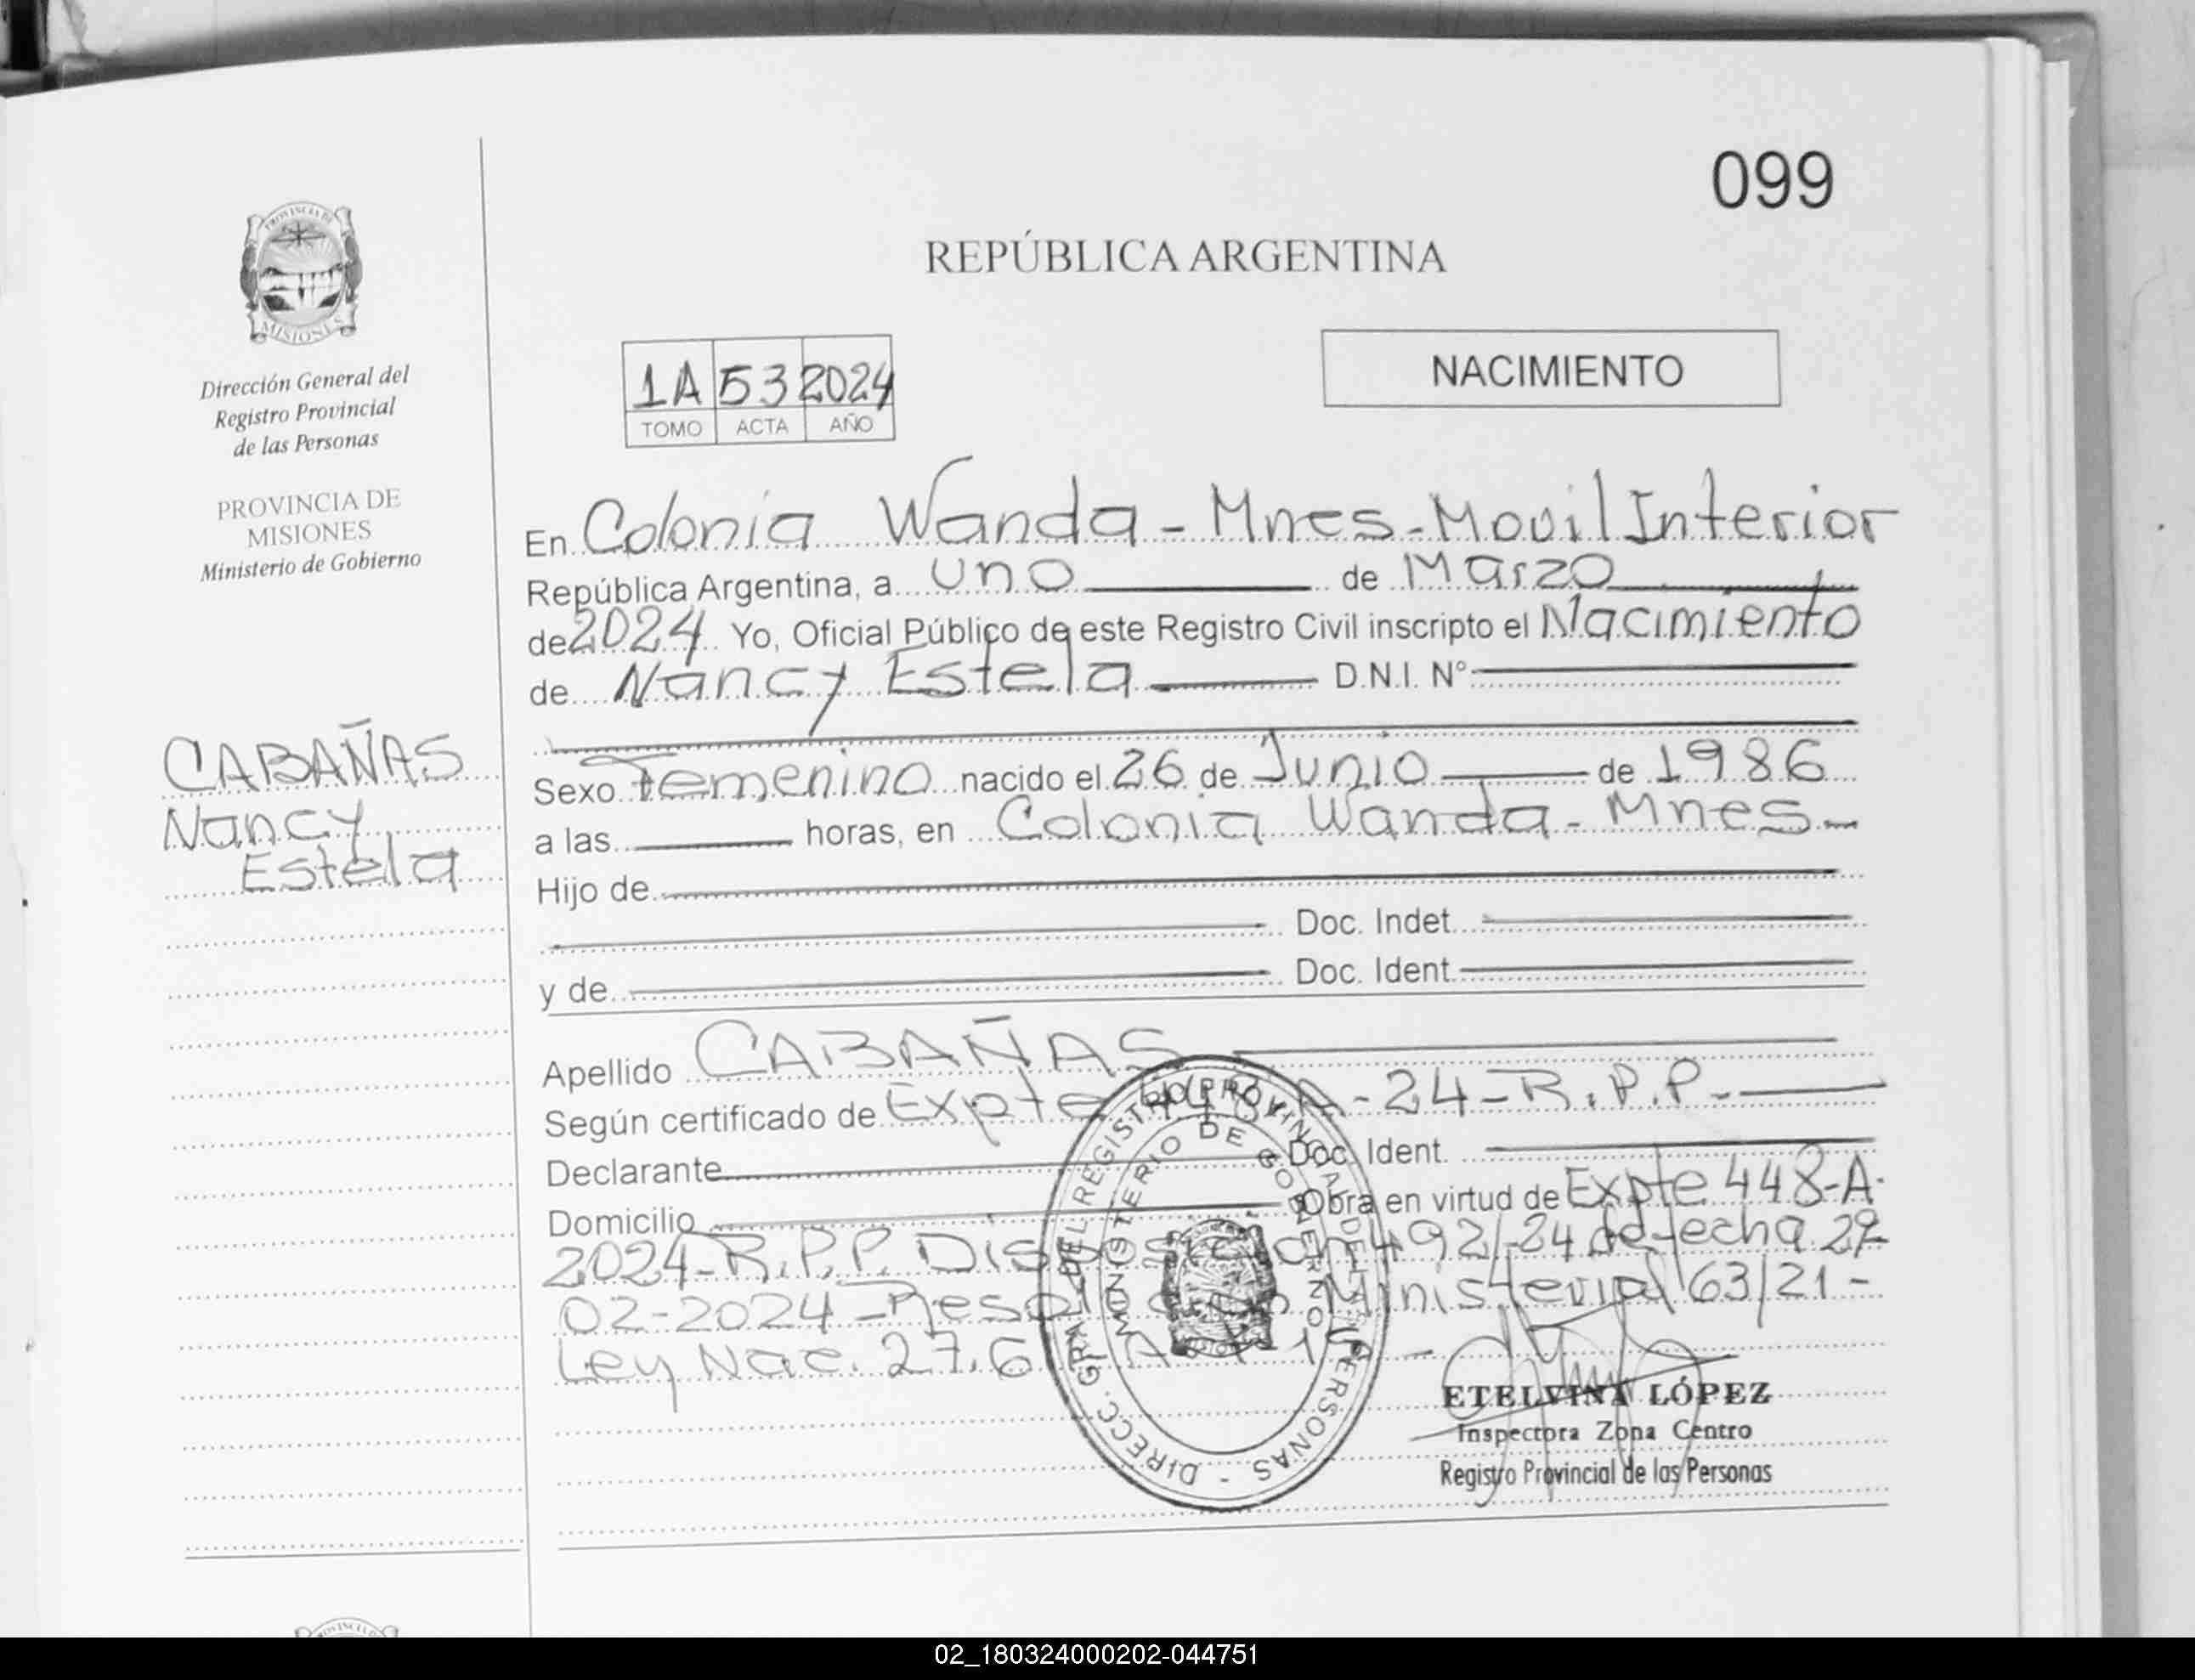 099
REPÚBLICA ARGENTINA
PROVINCIA DE
MISIONES
Dirección General del
Registro Provincial
de las Personas
PROVINCIA DE
MISIONES
Ministerio de Gobierno
1A 53 2024
TOMO ACTA AÑO
NACIMIENTO
En Colonia Wanda - Mnes - Movil Interior
República Argentina, a uno de Marzo
de 2024 Yo, Oficial Público de este Registro Civil inscripto el Nacimiento
de Nancy Estela D.N.I. Nº
CABAÑAS
Nancy
Estela
Sexo Femenino nacido el 26 de Junio de 1986
a las horas, en Colonia Wanda - Mnes -
Hijo de
Doc. Indet.
y de Doc. Ident.
Apellido CABAÑAS
Según certificado de Expte 448 A - 24 - R.P.P. -
Declarante Doc. Ident.
Domicilio Obra en virtud de Expte 448-A-
2024-R.P.P. Disposición 492/24 de fecha 27-
02-2024 - Resolución Ministerial 63/21 -
Ley Nac. 27.6 Art 15 -
DIRECC. GRAL. DEL REGISTRO PROVINCIAL DE LAS PERSONAS -
MINISTERIO DE GOBIERNO
ETELVINA LÓPEZ
Inspectora Zona Centro
Registro Provincial de las Personas
02_180324000202-044751